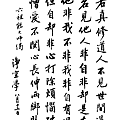 若真修道人不見世間過
若見他人非自非卻是左
他非我不非我非自有過
但自卻非心打除煩惱破
憎愛不關心長伸兩腳臥
六祖能大師偈
淨空學